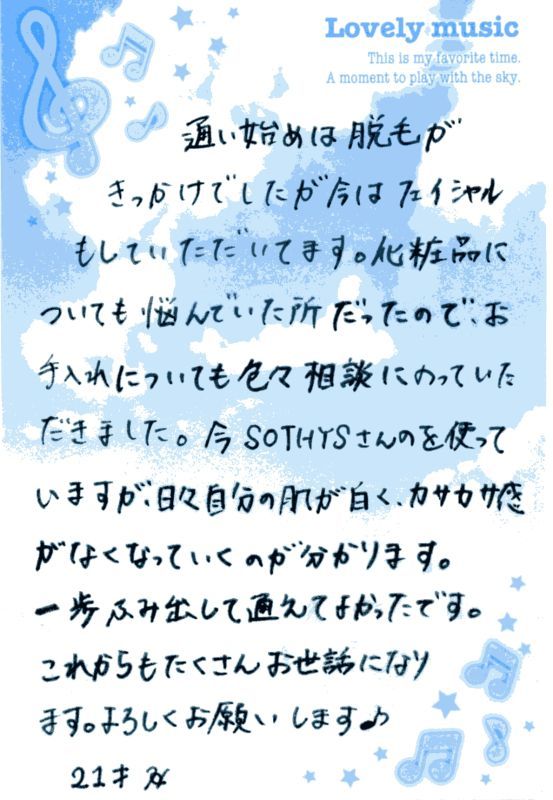 Lovely music
This is my favorite time.
A moment to play with the sky.
通い始めは脱毛が
きっかけでしたが今はフェイシャル
もしていただいてます。化粧品に
ついても悩んでいた所だったので、お
手入れについても色々相談にのっていた
だきました。今SOTHYSさんのを使って
いますが、日々自分の肌が白く、カサカサ感
がなくなっていくのが分かります。
一歩ふみ出して通えてよかったです。
これからもたくさんお世話になり
ます。よろしくお願いします♪
21才